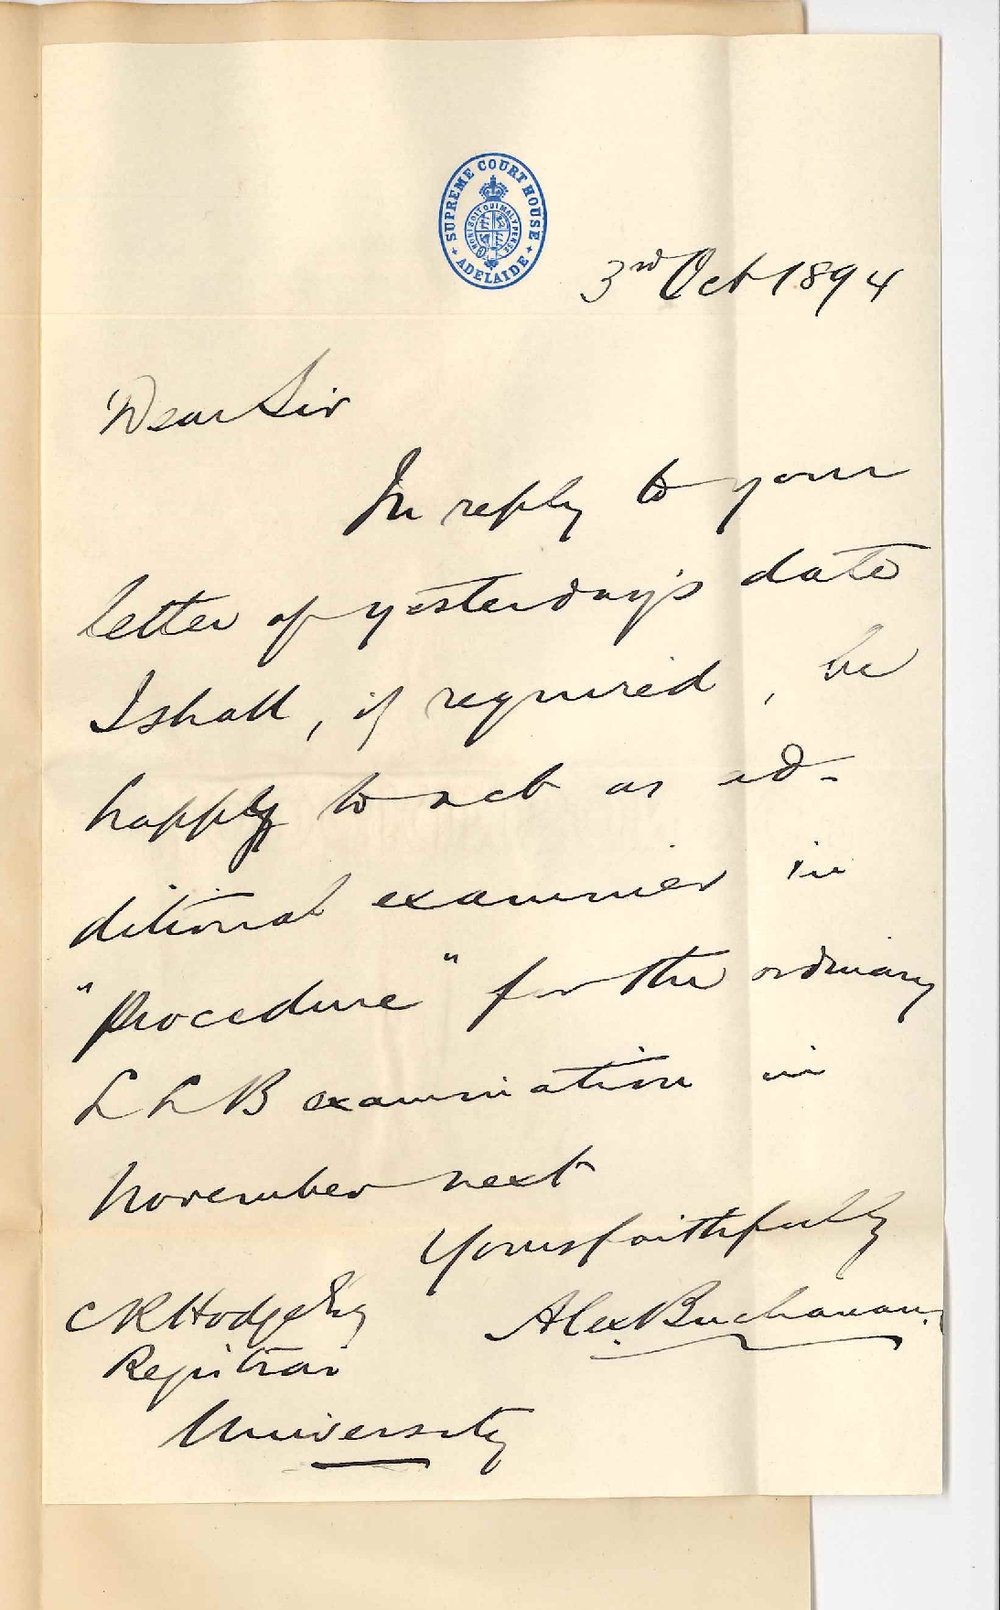 SUPREME COURT HOUSE
ADELAIDE
3rd Oct 1894
Dear Sir
In reply to your
letter of yesterday's date
I shall, if required, be
happy to act as ad-
ditional examiner in
"Procedure" for the ordinary
LLB examination in
November next
Yours faithfully
Alex Buchanan.
C R Hodge Esq
Registrar
University